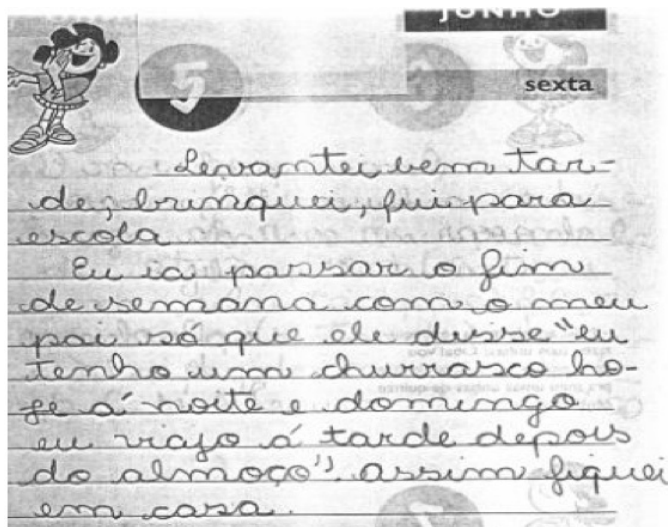 JUNHO
5
sexta
Levantei bem tar-
de, brinquei, fui para
escola
Eu ia passar o fim
de semana com o meu
pai só que ele disse "eu
tenho um churrasco ho-
ge á noite e domingo
eu viajo á tarde depois
do almoço" assim fiquei
em casa.